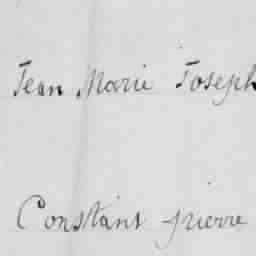 Jean Marie Joseph
Constant pierre